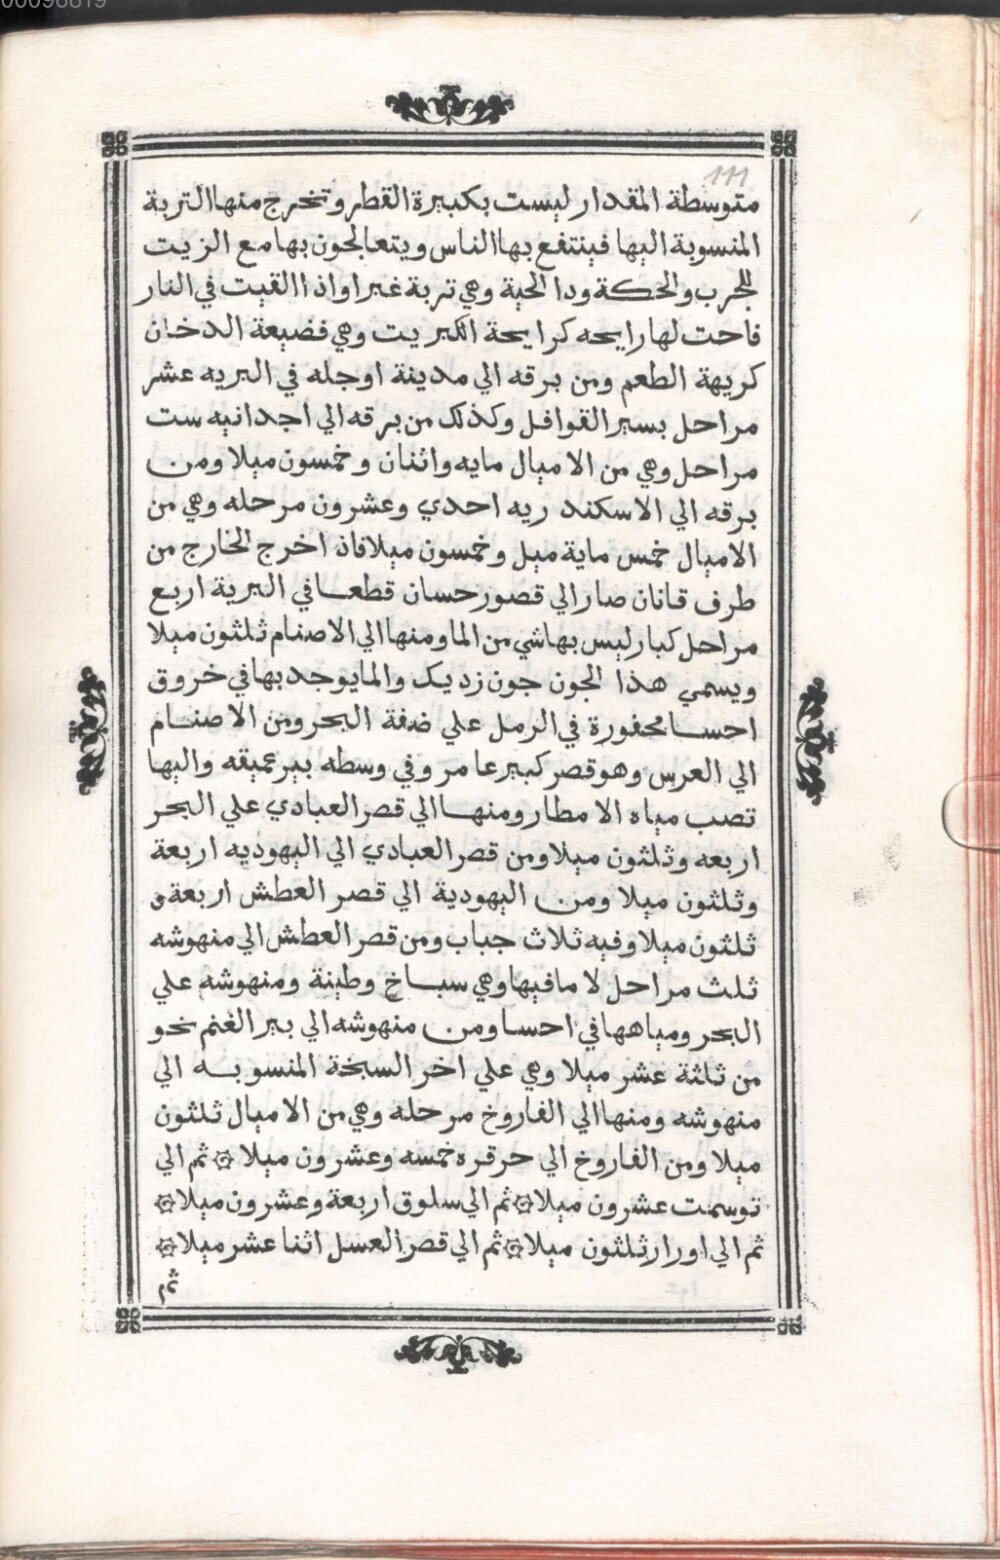 00096819
111
متوسطة المقدار ليست بكبيرة القطر وتخرج منها التربة
المنسوبة اليها فينتفع بها الناس ويتعالجون بها مع الزيت
للجرب والحكة ودا الحية وهي تربة غبرا واذا القيت في النار
فاحت لها رايحه كرايحة الكبريت وهي فضيعة الدخان
كريهة الطعم ومن برقه الي مدينة اوجله في البريه عشر
مراحل بسير القوافل وكذلك من برقه الي اجدانيه ست
مراحل وهي من الاميال مايه واثنان وخمسون ميلا ومن
برقه الي الاسكندريه احدي وعشرون مرحله وهي من
الاميال خمس ماية ميل وخمسون ميلا فاذ اخرج الخارج من
طرف قانان صار الي قصور حسان قطعا في البرية اربع
مراحل كبار ليس بها شي من الما ومنها الي الاصنام ثلثون ميلا
ويسمي هذا الجون جون زديك والما يوجد بها في خروق
احسا محفورة في الرمل علي ضفة البحر ومن الاصنام
الي العرس وهو قصر كبير عامر وفي وسطه بير عميقه واليها
تصب مياه الامطار ومنها الي قصر العبادي علي البحر
اربعه وثلثون ميلا ومن قصر العبادي الي اليهوديه اربعة
وثلثون ميلا ومن اليهودية الي قصر العطش اربعة و
ثلثون ميلا وفيه ثلاث جباب ومن قصر العطش الي منهوشه
ثلث مراحل لا ما فيها وهي سباخ وطينة ومنهوشه علي
البحر ومياهها في احسا ومن منهوشه الي بير الغنم نحو
من ثلثة عشر ميلا وهي علي اخر السبخة المنسوبه الي
منهوشه ومنها الي الفاروخ مرحله وهي من الاميال ثلثون
ميلا ومن الفاروخ الي حرقره خمسه وعشرون ميلا ۞ ثم الي
توسمت عشرون ميلا ۞ ثم الي سلوق اربعة وعشرون ميلا ۞
ثم الي اورار ثلثون ميلا ۞ ثم الي قصر العسل اثنا عشر ميلا ۞
ثم